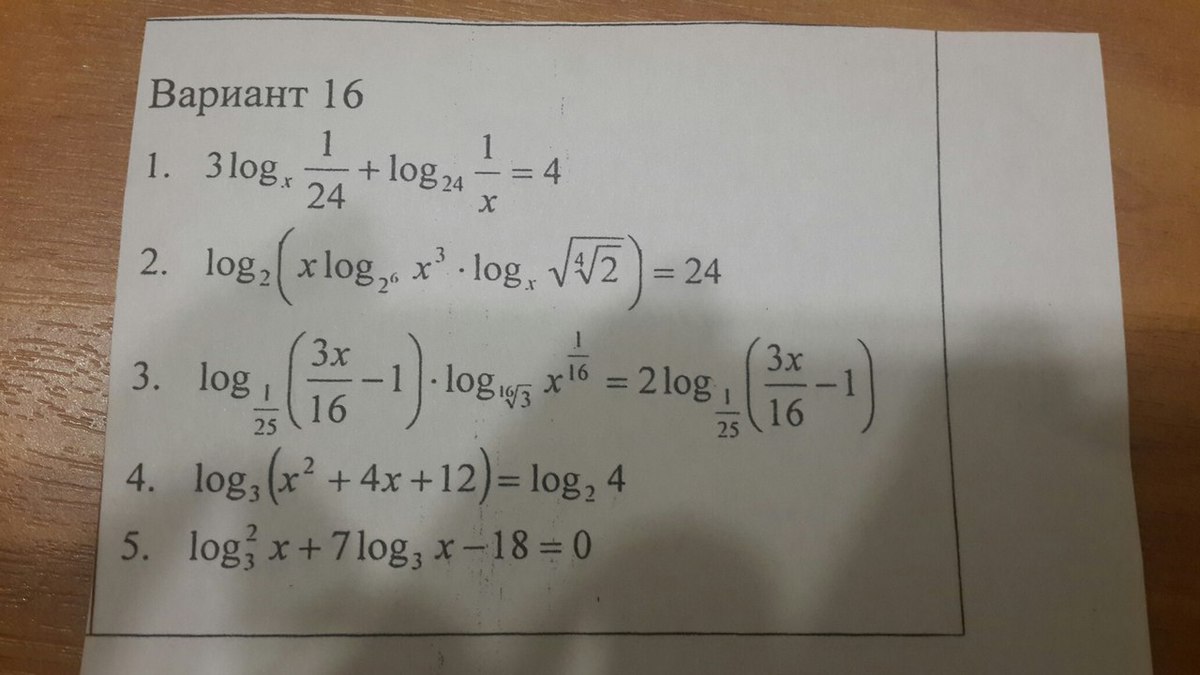 Вариант 16
1. 3 log_x 1/24 + log_24 1/x = 4
2. log_2 (x log_{2^6} x^3 · log_x √(∜2)) = 24
3. log_{1/25} (3x/16 − 1) · log_{¹⁶√3} x^{1/16} = 2 log_{1/25} (3x/16 − 1)
4. log_3 (x^2 + 4x + 12) = log_2 4
5. log_3^2 x + 7 log_3 x − 18 = 0